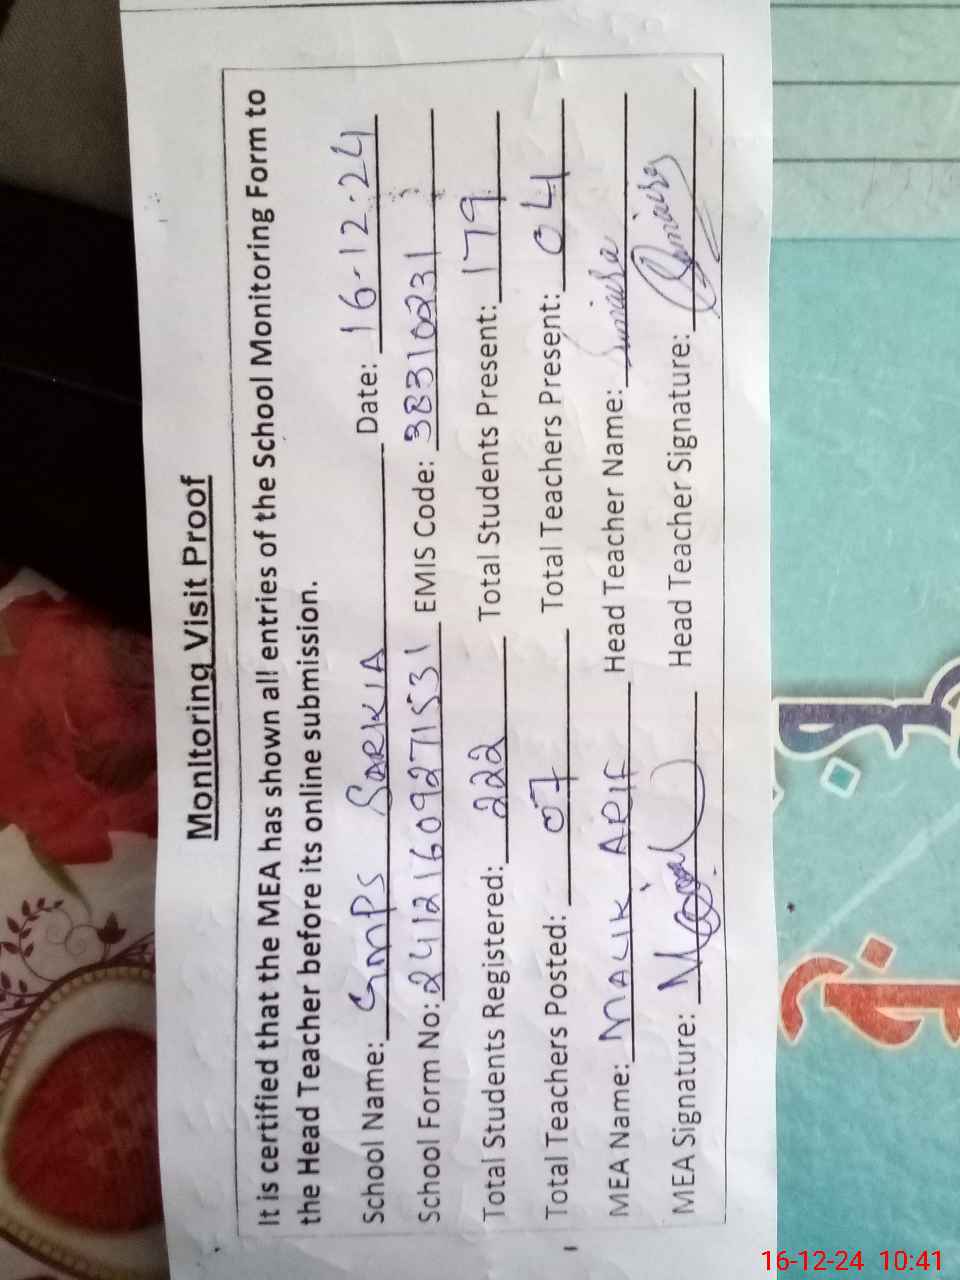 Monitoring Visit Proof
It is certified that the MEA has shown all entries of the School Monitoring Form to
the Head Teacher before its online submission.
School Name: GMPS SARKIA Date: 16-12-24
School Form No: 24121609271531 EMIS Code: 38310231
Total Students Registered: 222 Total Students Present: 179
Total Teachers Posted: 07 Total Teachers Present: 04
MEA Name: MALIK ARIF Head Teacher Name: Sumaira
MEA Signature: Head Teacher Signature: Sumaira
16-12-24 10:41